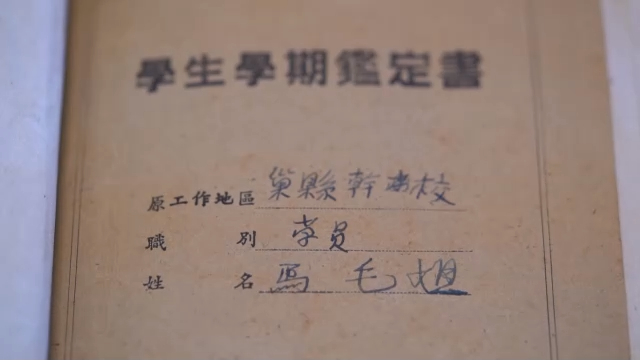 學生學期鑑定書
原工作地區 巢縣幹部校
職別 学員
姓名 馬毛姐